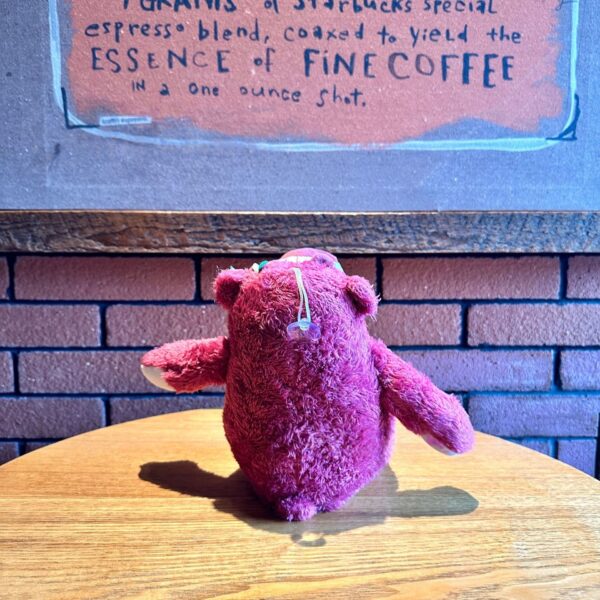 7 GRAMS of Starbucks special
espresso blend, coaxed to yield the
ESSENCE of FINE COFFEE
IN a one ounce shot.